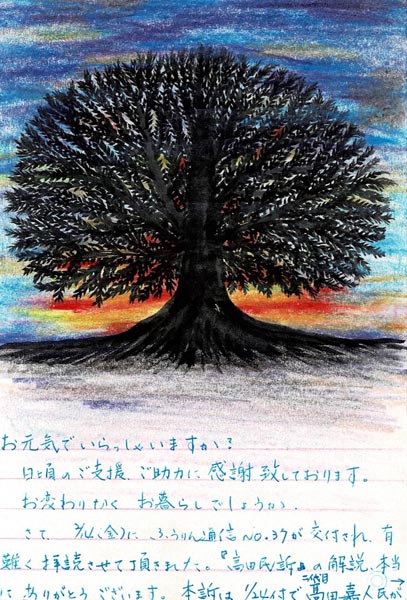 お元気でいらっしゃいますか?
日頃のご支援、ご助力に感謝致しております。
お変わりなくお暮らしでしょうか。
さて、2/14(金)にふうりん通信NO.37が交付され、有
難く拝読させて頂きました。『高田民訴』の解説、本当
にありがとうございます。本訴は 付で高田嘉人民が